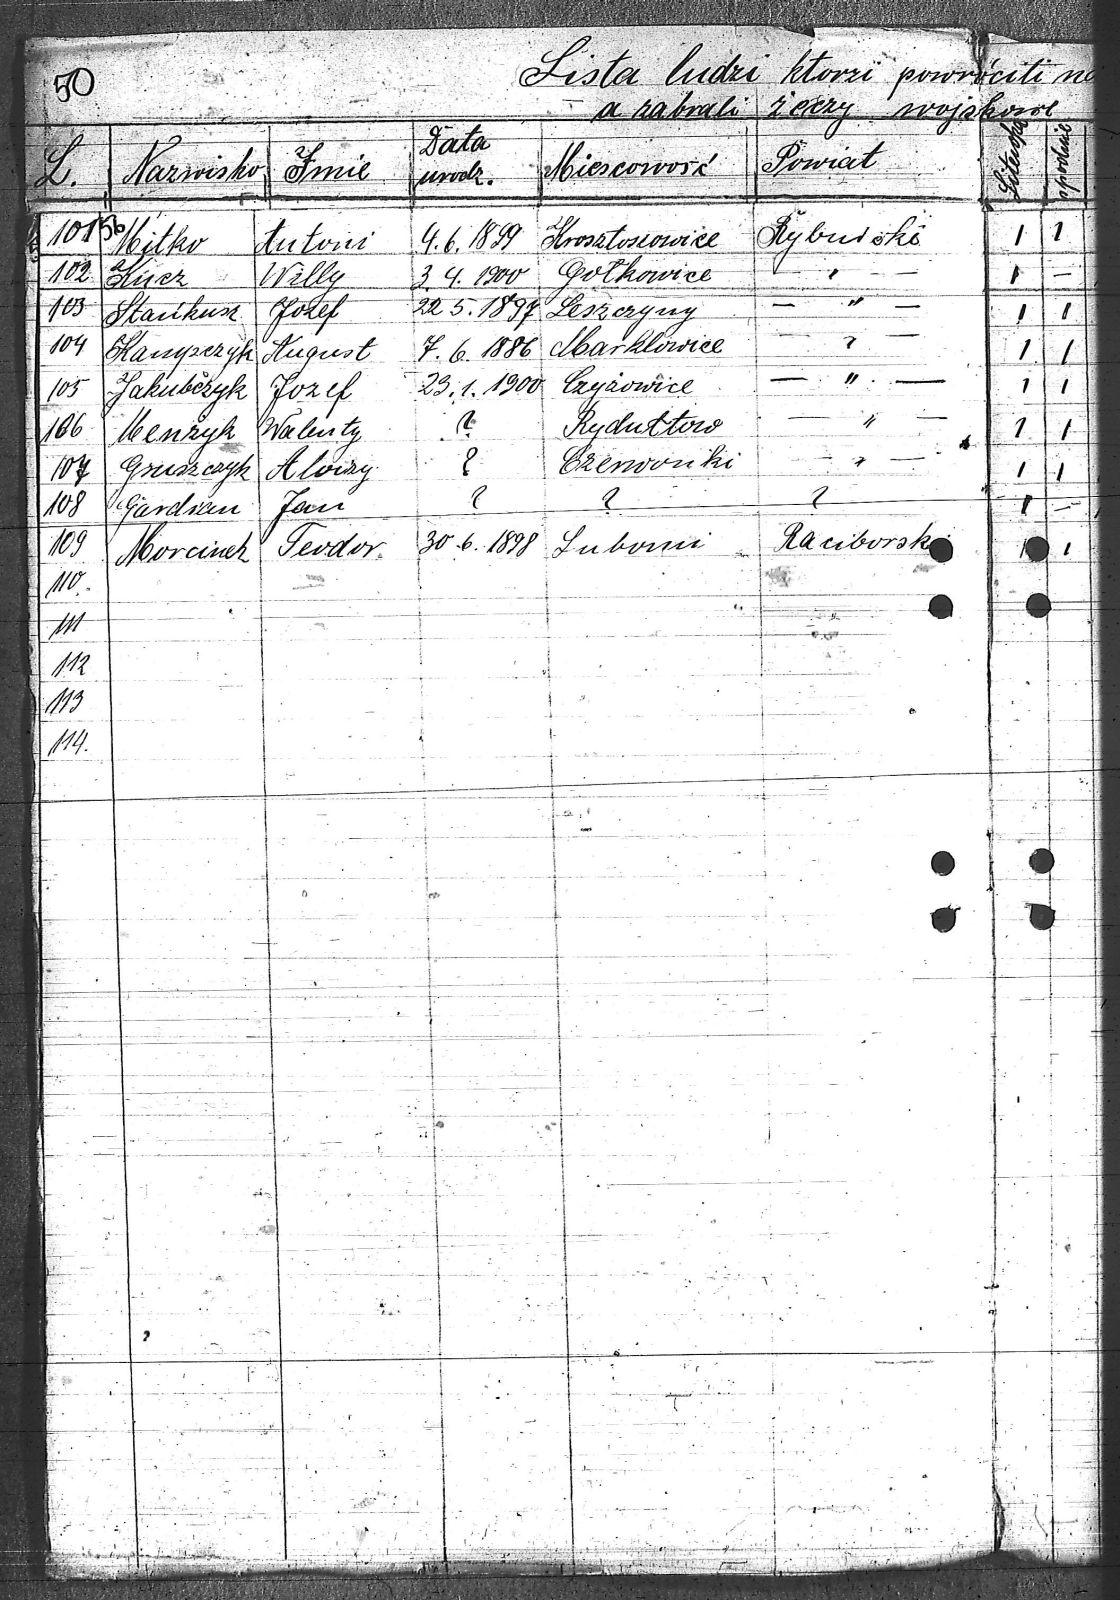 50
Lista ludzi ktorzi powrócili na
a zabrali żeczy wojskowe
L. Nazwisko Imie Data urodz. Miescowość Powiat spodnie
101 56 Mitko Antoni 4.6.1899 Krosztoszowice Rybnicki 1 1
102 Kucz Willy 3.4.1900 Gołkowice — " — 1 —
103 Stańkusz Jozef 22 5.1897 Leszczyny — " — 1 1
104 Kampczyk August 7.6.1886 Marklowice — " — 1 1
105 Jakubczyk Jozef 23.1.1900 Czyżowice — " — 1 1
106 Menżyk Walenty ? Rydułtow — " — 1 1
107 Gruszczyk Alojzy ? Czerwonki — " — 1 1
108 Gardian Jan ? ? ? 1 —
109 Morcinek Teodor 30.6.1898 Lubomi Raciborski 1 1
110.
111
112
113
114.